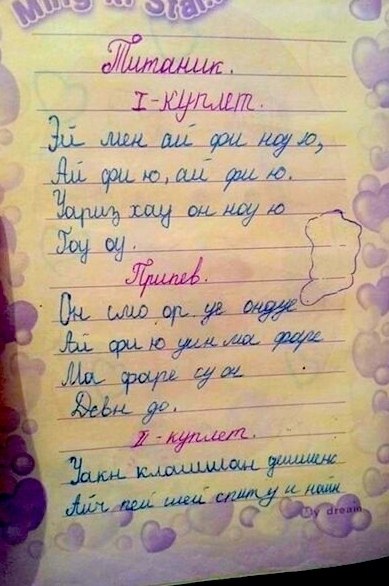 Титаник.
I-куплет.
Эй мен ай фи ноу ю,
Ай фи ю, ай фи ю.
Уариз хау он ноу ю
Гоу оу.
Припев.
Он смо ор уе ондуе
Ай фи ю уин ма фаре
Ма фаре су он
Девн до.
II-куплет.
Уакн
Айч пей шей спит у н найн
My dream